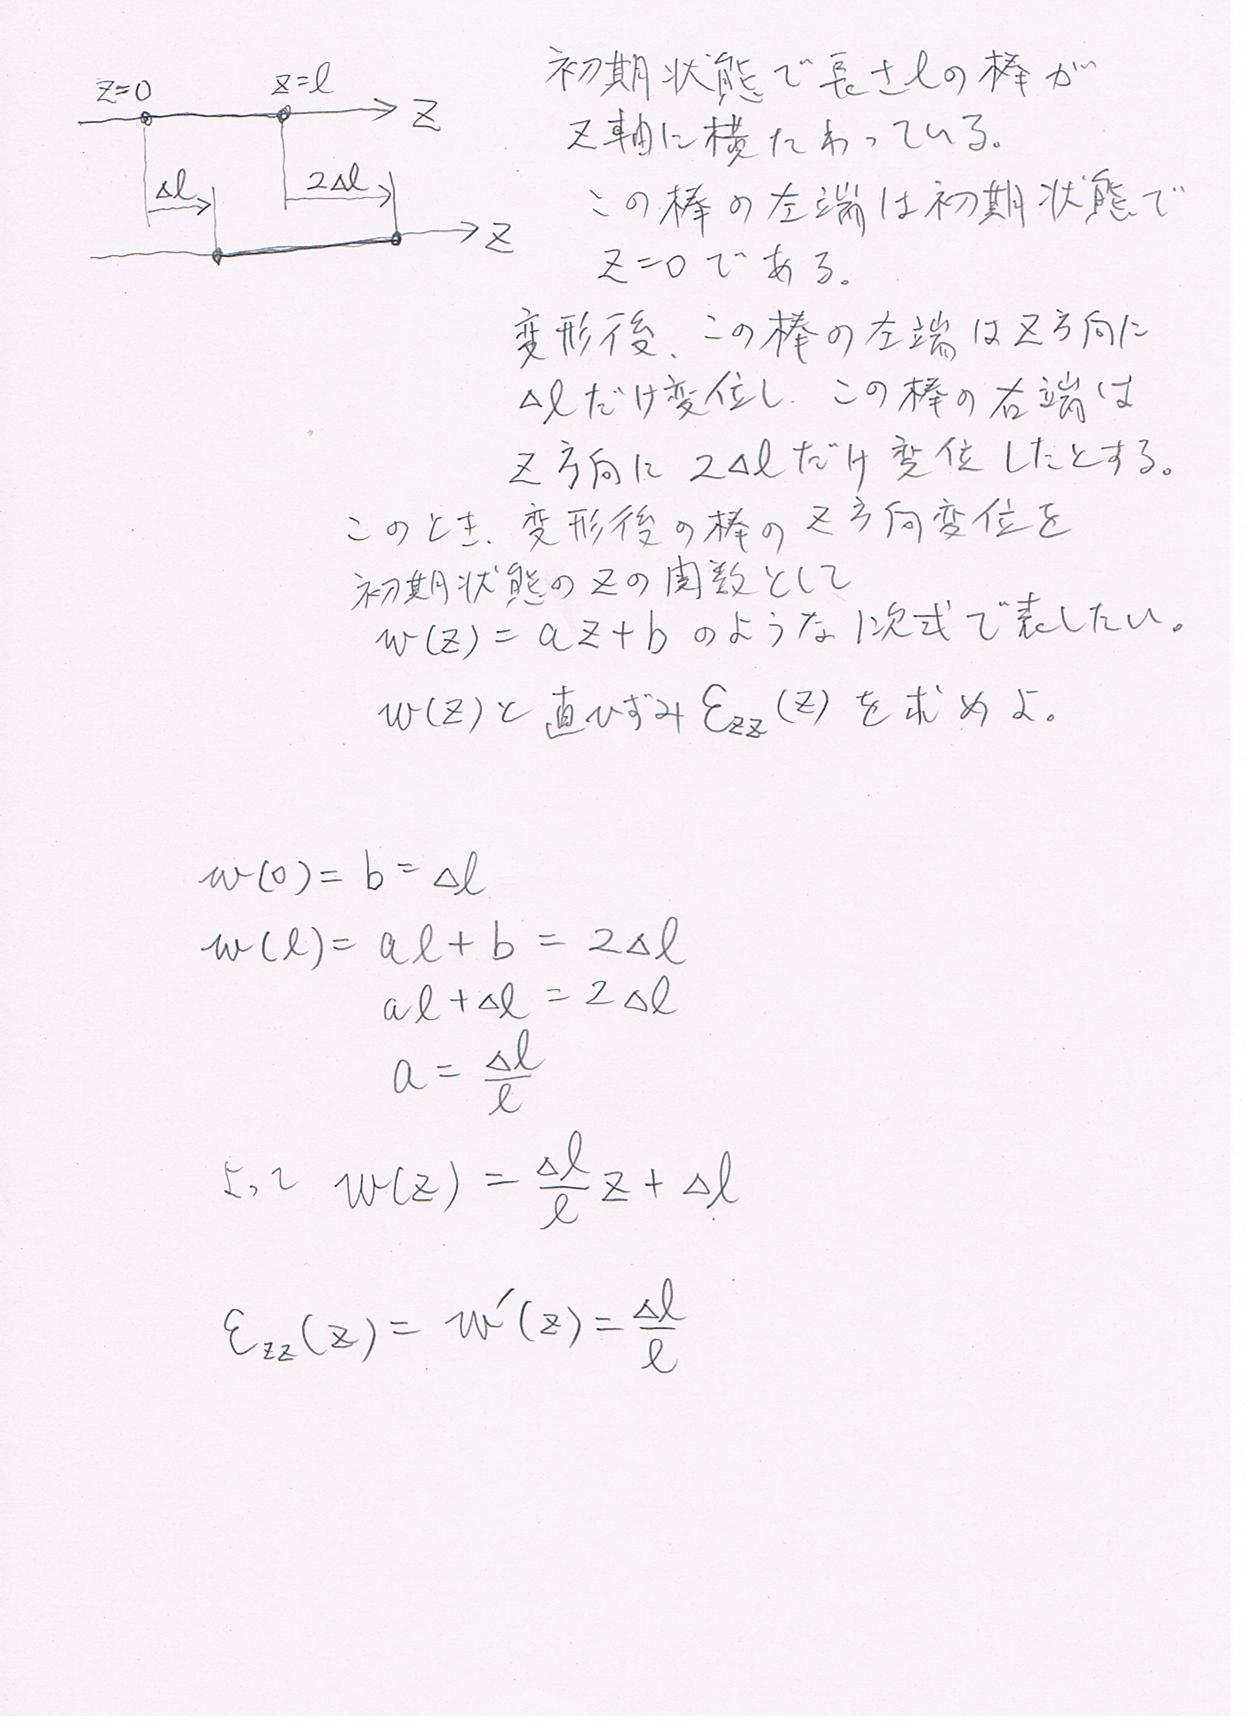 z=0
z=l
z
Δl
2Δl
z
初期状態で長さlの棒が
z軸に横たわっている。
この棒の左端は初期状態で
z=0である。
変形後、この棒の左端はz方向に
Δlだけ変位し、この棒の右端は
z方向に2Δlだけ変位したとする。
このとき、変形後の棒のz方向変位を
初期状態のzの関数として
w(z)=az+bのような1次式で表したい。
w(z)と直ひずみεzz(z)を求めよ。
w(0)=b=Δl
w(l)=al+b=2Δl
al+Δl=2Δl
a=Δl/l
よって w(z)=Δl/l z+Δl
εzz(z)=w′(z)=Δl/l